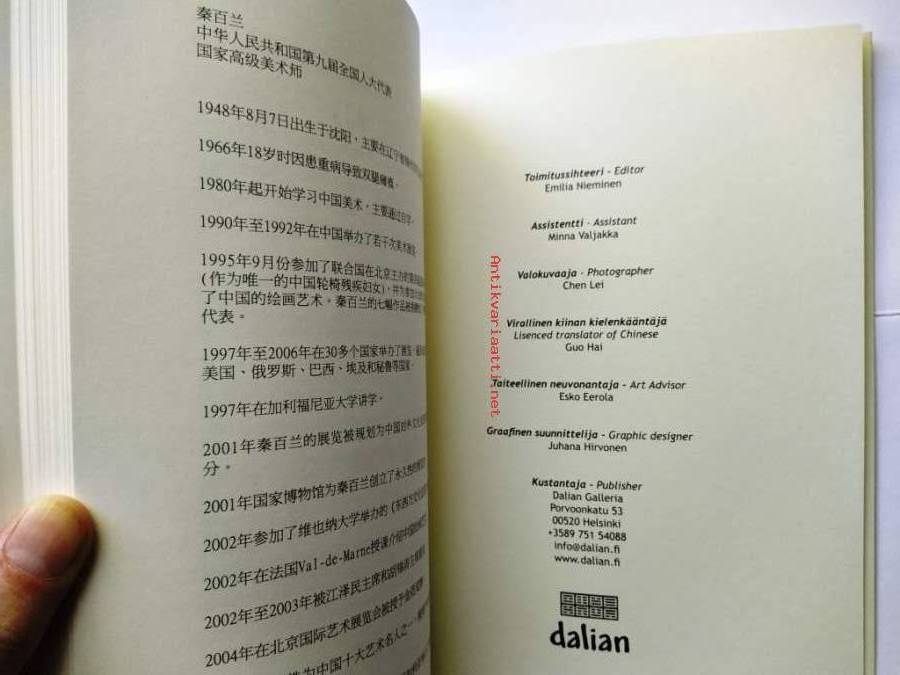 秦百兰
中华人民共和国第九届全国人大代表
国家高级美术师
1948年8月7日出生于沈阳，主要在辽宁
1966年18岁时因患重病导致双腿瘫痪。
1980年起开始学习中国美术，主要通过自学。
1990年至1992年在中国举办了若干次美术展览。
1995年9月份参加了联合国在北京主办的
(作为唯一的中国轮椅残疾妇女)，并为
了中国的绘画艺术。秦百兰的七幅作品被
代表。
1997年至2006年在30多个国家举办了展览，
美国、俄罗斯、巴西、埃及和秘鲁等国家。
1997年在加利福尼亚大学讲学。
2001年秦百兰的展览被规划为中国
分。
2001年国家博物馆为秦百兰创立了永久性的
2002年参加了维也纳大学举办的《东西方文化
2002年在法国Val-de-Marne授课介绍中国
2002年至2003年被江泽民主席和胡锦涛主席
2004年在北京国际艺术展览会被授予金
为中国十大艺术名人之一，
Toimitussihteeri - Editor
Emilia Nieminen
Assistentti - Assistant
Minna Valjakka
Valokuvaaja - Photographer
Chen Lei
Virallinen kiinan kielenkääntäjä
Lisenced translator of Chinese
Guo Hai
Taiteellinen neuvonantaja - Art Advisor
Esko Eerola
Graafinen suunnittelija - Graphic designer
Juhana Hirvonen
Kustantaja - Publisher
Dalian Galleria
Porvoonkatu 53
00520 Helsinki
+3589 751 54088
info@dalian.fi
www.dalian.fi
dalian
Antikvariaatti.net